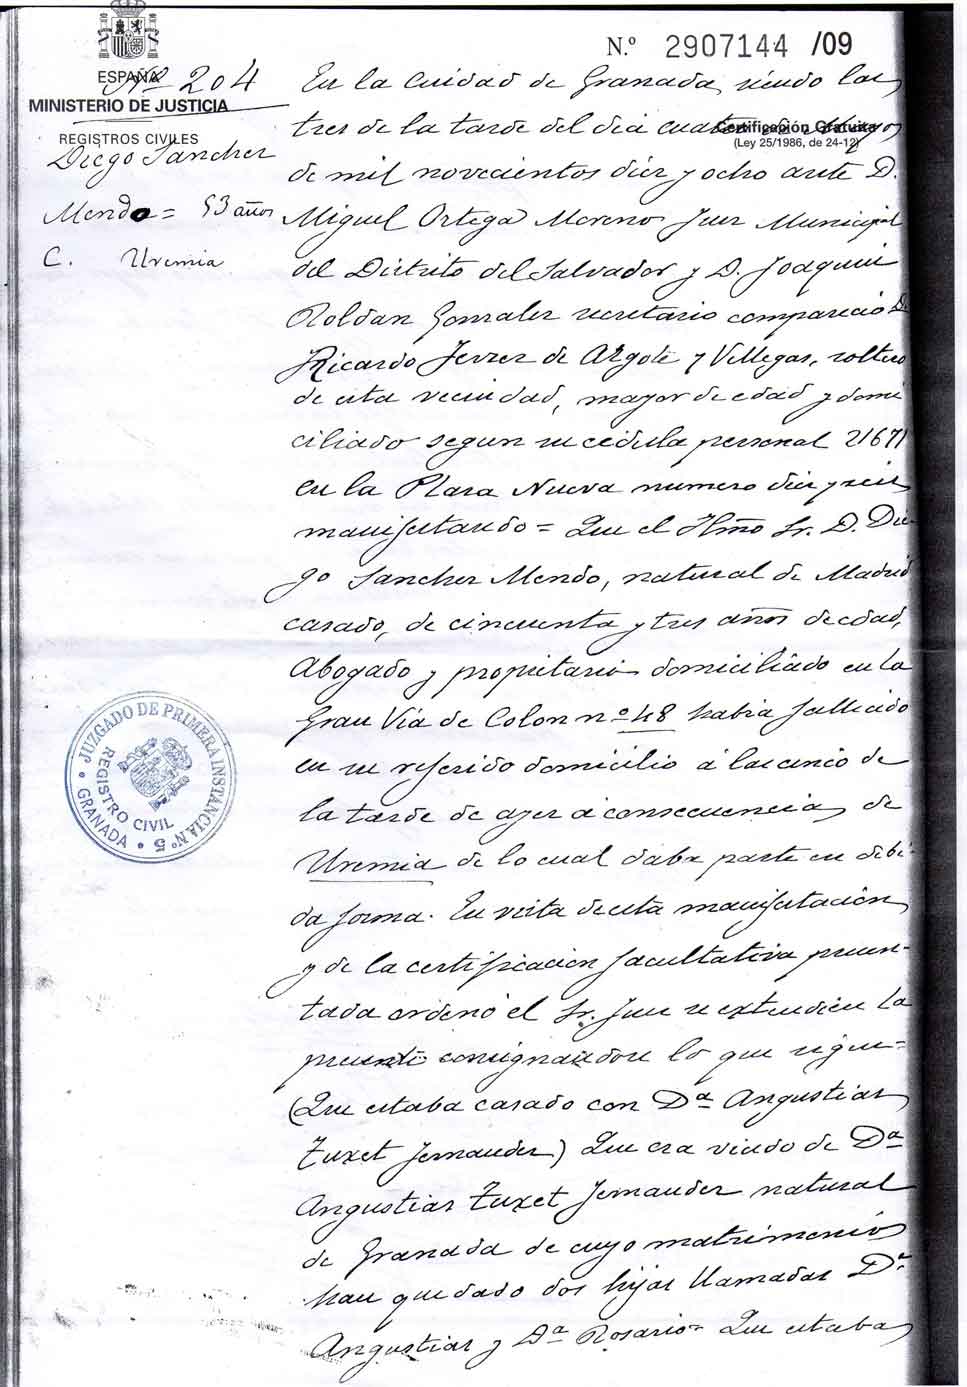 N.º 2907144 /09
ESPAÑA
Nº 204
MINISTERIO DE JUSTICIA
REGISTROS CIVILES
Certificación Gratuita
(Ley 25/1986, de 24-12)
Diego Sanchez
Mendo = 53 años
C. Uremia
En la Ciudad de Granada, siendo las
tres de la tarde del dia cuatro de
de mil novecientos diez y ocho ante D.
Miguel Ortega Moreno Juez Municipal
del Distrito del Salvador y D. Joaquin
Roldan Gonzalez secretario compareció Dn
Ricardo de Argote y Villegas, soltero
de esta vecindad, mayor de edad y domi
ciliado segun su cédula personal 21671
en la Plaza Nueva numero diez y seis
manifestando = Que el Iltmo Sr. D. Die-
go Sanchez Mendo, natural de Madrid
casado, de cincuenta y tres años de edad,
Abogado y propietario domiciliado en la
Gran Vía de Colon nº 48 habia fallecido
en su referido domicilio á las cinco de
la tarde de ayer á consecuencia de
Uremia de lo cual daba parte en debi-
da forma. En vista de esta manifestación
y de la certificación facultativa presen-
tada ordenó el Sr. Juez se extendiese la
presente consignandose lo que sigue=
(Que estaba casado con Dª Angustias
Tuxet Fernandez) Que era viudo de Dª
Angustias Tuxet Fernandez natural
de Granada de cuyo matrimonio
han quedado dos hijas llamadas Dª
Angustias y Dª Rosario= Que estaba
JUZGADO DE PRIMERA INSTANCIA Nº 5
GRANADA
REGISTRO CIVIL